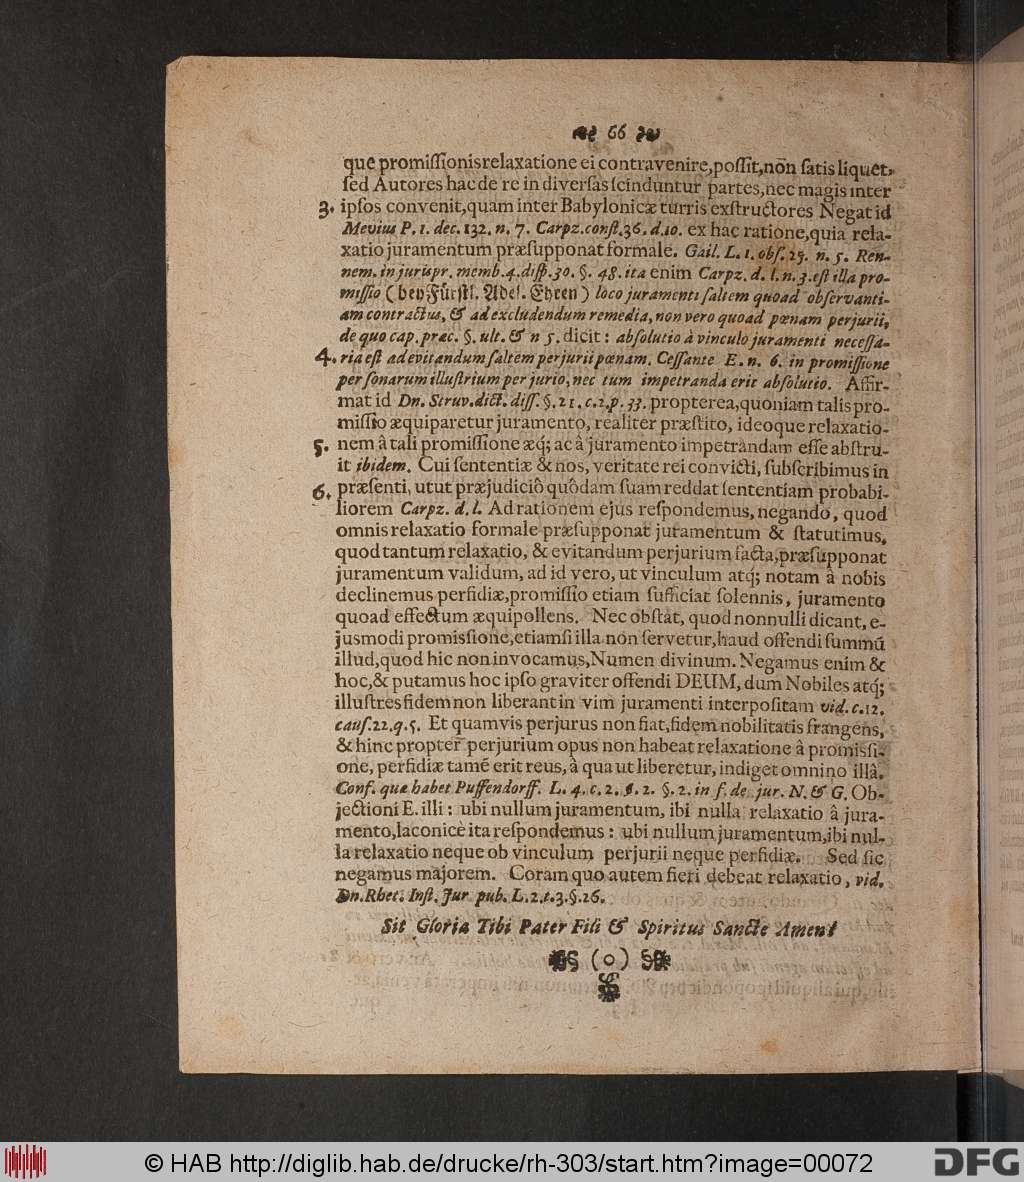 66
que promiſſionis relaxatione ei contravenire, poſſit, non ſatis liquet,
ſed Autores hac de re in diverſas ſcinduntur partes, nec magis inter
3. ipſos convenit, quam inter Babylonicæ turris exſtructores Negat id
Mevius P. 1. dec. 132. n. 7. Carpz. conſt. 36. d. 10. ex hac ratione, quia rela-
xatio juramentum præſupponat formale. Gail. L. 1. obſ. 25. n. 5. Ren-
nem. in jurispr. memb. 4. diſp. 30. §. 48. ita enim Carpz. d. l. n. 3. eſt illa pro-
miſſio (bey Fürſtl. Adel. Ehren) loco juramenti ſaltem quoad obſervanti-
am contractus, & ad excludendum remedia, non vero quoad pœnam perjurii,
de quo cap. præc. §. ult. & n 5. dicit: abſolutio à vinculo juramenti neceſſa-
4. ria eſt ad evitandum ſaltem perjurii pœnam. Ceſſante E. n. 6. in promiſſione
perſonarum illuſtrium perjurio, nec tum impetranda erit abſolutio. Affir-
mat id Dn. Struv. dict. diſſ. §. 21. c. 2, p. 33. propterea, quoniam talis pro-
miſſio æquiparetur juramento, realiter præſtito, ideoque relaxatio-
5. nem â tali promiſſione æq; ac â juramento impetrandam eſſe abſtru-
it ibidem. Cui ſententiæ & nos, veritate rei convicti, ſubſcribimus in
6. præſenti, utut præjudiciô quôdam ſuam reddat ſententiam probabi-
liorem Carpz. d. l. Ad rationem ejus reſpondemus, negando, quod
omnis relaxatio formale præſupponat juramentum & ſtatutimus,
quod tantum relaxatio, & evitandum perjurium facta, præſupponat
juramentum validum, ad id vero, ut vinculum atq; notam â nobis
declinemus perfidiæ, promiſſio etiam ſufficiat ſolennis, juramento
quoad effectum æquipollens. Nec obſtat, quod nonnulli dicant, e-
jusmodi promiſsione, etiamſi illa non ſervetur, haud offendi ſummũ
illud, quod hic non invocamus, Numen divinum. Negamus enim &
hoc, & putamus hoc ipſo graviter offendi DEUM, dum Nobiles atq;
illuſtres fidem non liberant in vim juramenti interpoſitam vid. c. 12.
cauſ. 22. q. 5. Et quamvis perjurus non fiat, fidem nobilitatis frangens,
& hinc propter perjurium opus non habeat relaxatione â promiſsi-
one, perfidiæ tamẽ erit reus, â qua ut liberetur, indiget omnino illâ.
Conf. quæ habet Puffendorff. L. 4. c. 2. §. 2. §. 2. in f. de jur. N. & G. Ob-
jectioni E. illi: ubi nullum juramentum, ibi nulla relaxatio â jura-
mento, laconicè ita reſpondemus: ubi nullum juramentum, ibi nul-
la relaxatio neque ob vinculum perjurii neque perfidiæ. Sed ſic
negamus majorem. Coram quo autem fieri debeat relaxatio, vid.
Dn. Rhet. Inſt. Jur pub. L. 2. t. 3. §. 26.
Sit Gloria Tibi Pater Fili & Spiritus Sancte Amen!
(o)
© HAB http://diglib.hab.de/drucke/rh-303/start.htm?image=00072
DFG